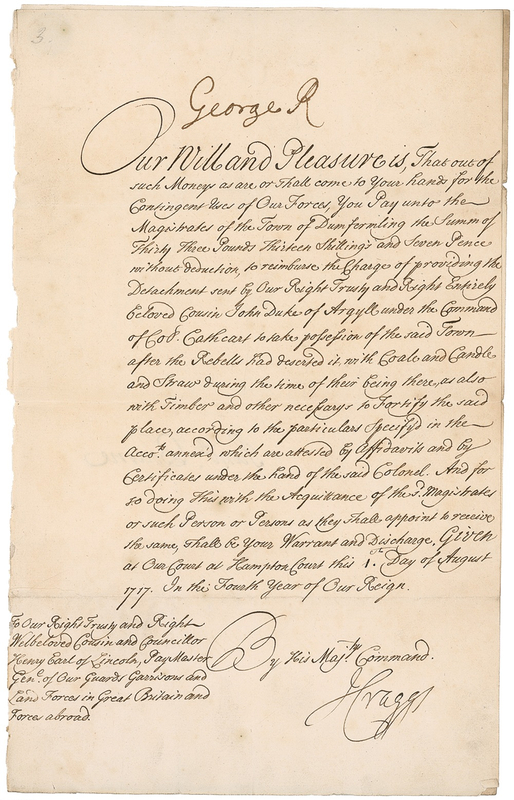 3.
George R
Our Will and Pleasure is, That out of
such Moneys as are or shall come to Your hands for the
Contingent Uses of Our Forces, You Pay unto the
Magistrates of the Town of Dumfermling the Summ of
Thirty Three Pounds Thirteen Shillings and Seven Pence
without deduction, to reimburse the Charge of providing the
Detachment sent by Our Right Trusty and Right Entirely
beloved Cousin John Duke of Argyll under the Command
of Col.º Cathcart to take possession of the said Town
after the Rebells had deserted it, with Coale and Candle
and Straw during the time of their being there, as also
with Timber and other necessarys to Fortify the said
place, according to the particulars Specify'd in the
Acco.ts annex'd which are attested by Affidavits and by
Certificates under the hand of the said Colonel. And for
so doing This with the Acquittance of the s.d Magistrates
or such Person or Persons as they shall appoint to receive
the same, shall be Your Warrant and Discharge. Given
at Our Court at Hampton Court this 1.st Day of August
1717. In the Fourth Year of Our Reign.
To Our Right Trusty and Right
Welbeloved Cousin and Councillor
Henry Earl of Lincoln, PayMaster
Gen.l of Our Guards Garrisons and
Land Forces in Great Britain and
Forces abroad.
By His Maj.tys Command.
J Craggs